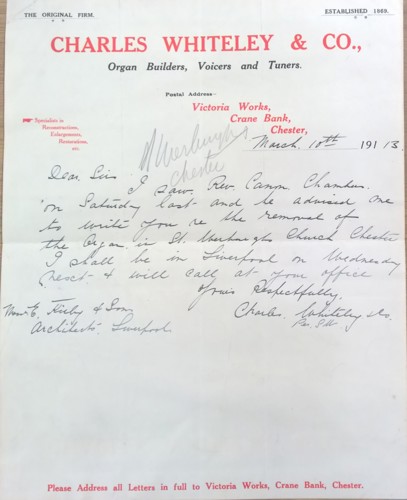 THE ORIGINAL FIRM.
ESTABLISHED 1869.
CHARLES WHITELEY & CO.,
Organ Builders, Voicers and Tuners.
Postal Address—
Victoria Works,
Crane Bank,
Chester,
Specialists in
Reconstructions,
Enlargements,
Restorations,
etc.
March 10th 1913.
Werburghs
Chester
Dear Sirs
I saw Rev. Canon Chambers
on Saturday last and he advised me
to write you re the removal of
the Organ in St. Werburghs Church Chester
I shall be in Liverpool on Wednesday
next & will call at your office
Yours Respectfully,
Charles Whiteley & Co
Messrs E. Kirby & Sons
Architects. Liverpool
Please Address all Letters in full to Victoria Works, Crane Bank, Chester.